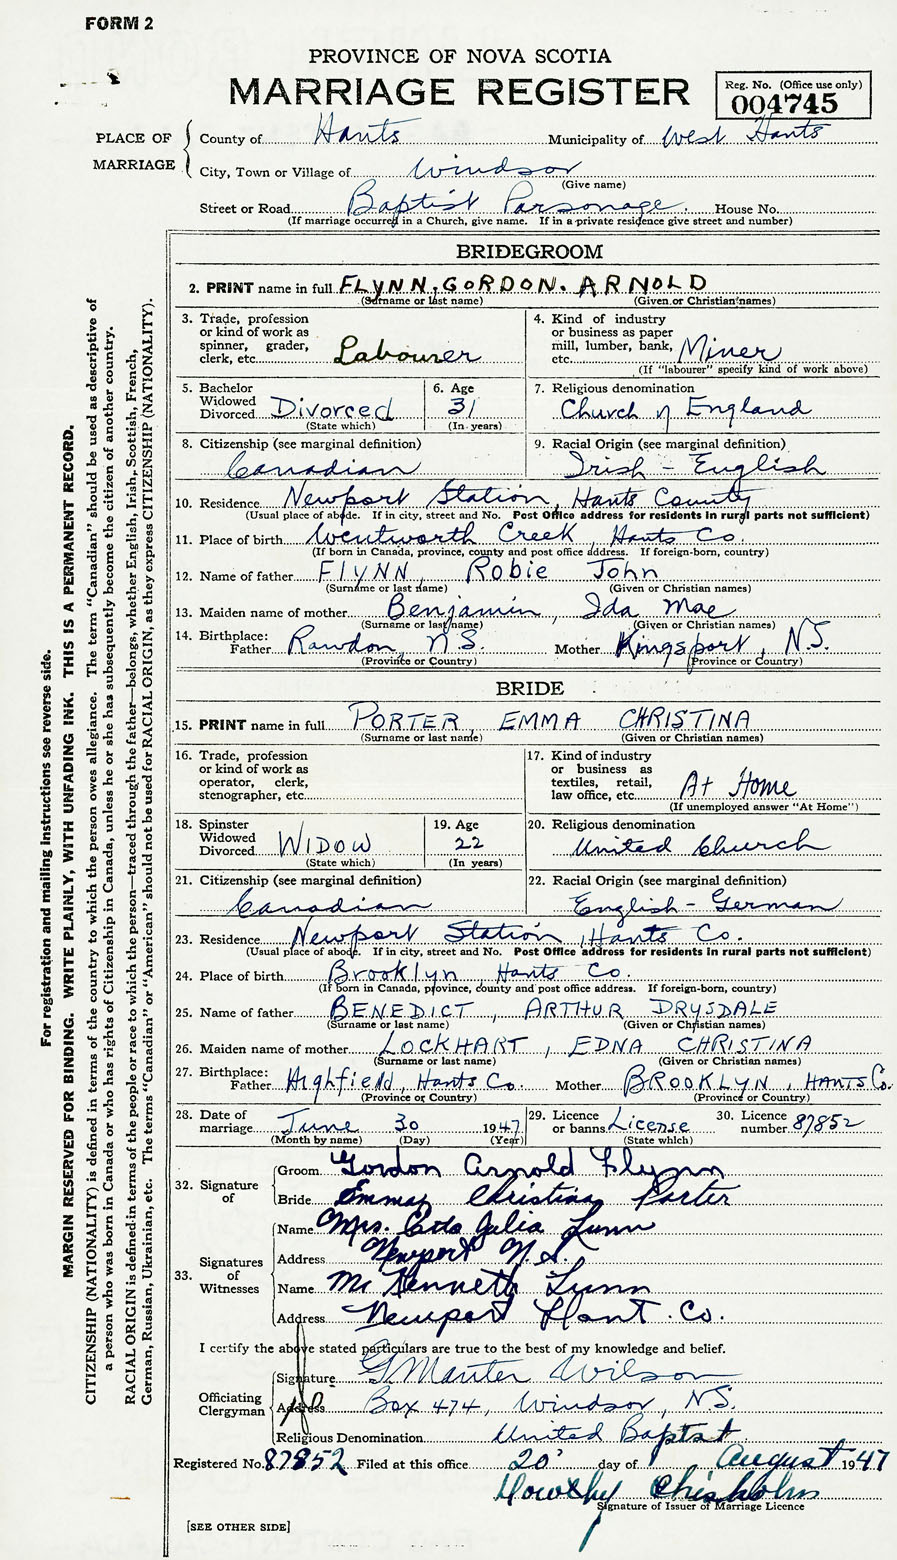 FORM 2
PROVINCE OF NOVA SCOTIA
MARRIAGE REGISTER
Reg. No. (Office use only)
004745
PLACE OF MARRIAGE
County of Hants Municipality of West Hants
City, Town or Village of Windsor
(Give name)
Street or Road Baptist Parsonage. House No.
(If marriage occurred in a Church, give name. If in a private residence give street and number)
BRIDEGROOM
2. PRINT name in full FLYNN, GORDON. ARNOLD
(Surname or last name) (Given or Christian names)
3. Trade, profession or kind of work as spinner, grader, clerk, etc. Labourer
4. Kind of industry or business as paper mill, lumber, bank, etc. Miner
(If "labourer" specify kind of work above)
5. Bachelor Widowed Divorced Divorced
(State which)
6. Age 31
(In years)
7. Religious denomination
Church of England
8. Citizenship (see marginal definition)
Canadian
9. Racial Origin (see marginal definition)
Irish - English
10. Residence Newport Station, Hants County
(Usual place of abode. If in city, street and No. Post Office address for residents in rural parts not sufficient)
11. Place of birth Wentworth Creek, Hants Co.
(If born in Canada, province, county and post office address. If foreign-born, country)
12. Name of father FLYNN, Robie John
(Surname or last name) (Given or Christian names)
13. Maiden name of mother Benjamin, Ida Mae
(Surname or last name) (Given or Christian names)
14. Birthplace:
Father Rawdon, N.S. Mother Kingsport, N.S.
(Province or Country) (Province or Country)
BRIDE
15. PRINT name in full PORTER, EMMA CHRISTINA
(Surname or last name) (Given or Christian names)
16. Trade, profession or kind of work as operator, clerk, stenographer, etc.
17. Kind of industry or business as textiles, retail, law office, etc. At Home
(If unemployed answer "At Home")
18. Spinster Widowed Divorced WIDOW
(State which)
19. Age 22
(In years)
20. Religious denomination
United Church
21. Citizenship (see marginal definition)
Canadian
22. Racial Origin (see marginal definition)
English - German
23. Residence Newport Station, Hants Co.
(Usual place of abode. If in city, street and No. Post Office address for residents in rural parts not sufficient)
24. Place of birth Brooklyn, Hants Co.
(If born in Canada, province, county and post office address. If foreign-born, country)
25. Name of father BENEDICT, ARTHUR DRYSDALE
(Surname or last name) (Given or Christian names)
26. Maiden name of mother LOCKHART, EDNA CHRISTINA
(Surname or last name) (Given or Christian names)
27. Birthplace:
Father Highfield, Hants Co. Mother BROOKLYN, HANTS Co.
(Province or Country) (Province or Country)
28. Date of marriage June 30 1947
(Month by name) (Day) (Year)
29. Licence or banns License
(State which)
30. Licence number 87852
32. Signature of
Groom Gordon Arnold Flynn
Bride Emma Christina Porter
33. Signatures of Witnesses
Name Mrs. Julia Lunn
Address Newport N.S.
Name Mr Kenneth Lunn
Address Newport Hant. Co.
I certify the above stated particulars are true to the best of my knowledge and belief.
Officiating Clergyman
Signature G. Manter Wilson
Address Box 474, Windsor, N.S.
Religious Denomination United Baptist
Registered No. 87852 Filed at this office 20' day of August 1947
Chisholm
Signature of Issuer of Marriage Licence
[SEE OTHER SIDE]
For registration and mailing instructions see reverse side.
MARGIN RESERVED FOR BINDING. WRITE PLAINLY, WITH UNFADING INK. THIS IS A PERMANENT RECORD.
CITIZENSHIP (NATIONALITY) is defined in terms of the country to which the person owes allegiance. The term "Canadian" should be used as descriptive of
a person who was born in Canada or who has rights of Citizenship in Canada, unless he or she has subsequently become the citizen of another country.
RACIAL ORIGIN is defined in terms of the people or race to which the person—traced through the father—belongs, whether English, Irish, Scottish, French,
German, Russian, Ukrainian, etc. The terms "Canadian" or "American" should not be used for RACIAL ORIGIN, as they express CITIZENSHIP (NATIONALITY).